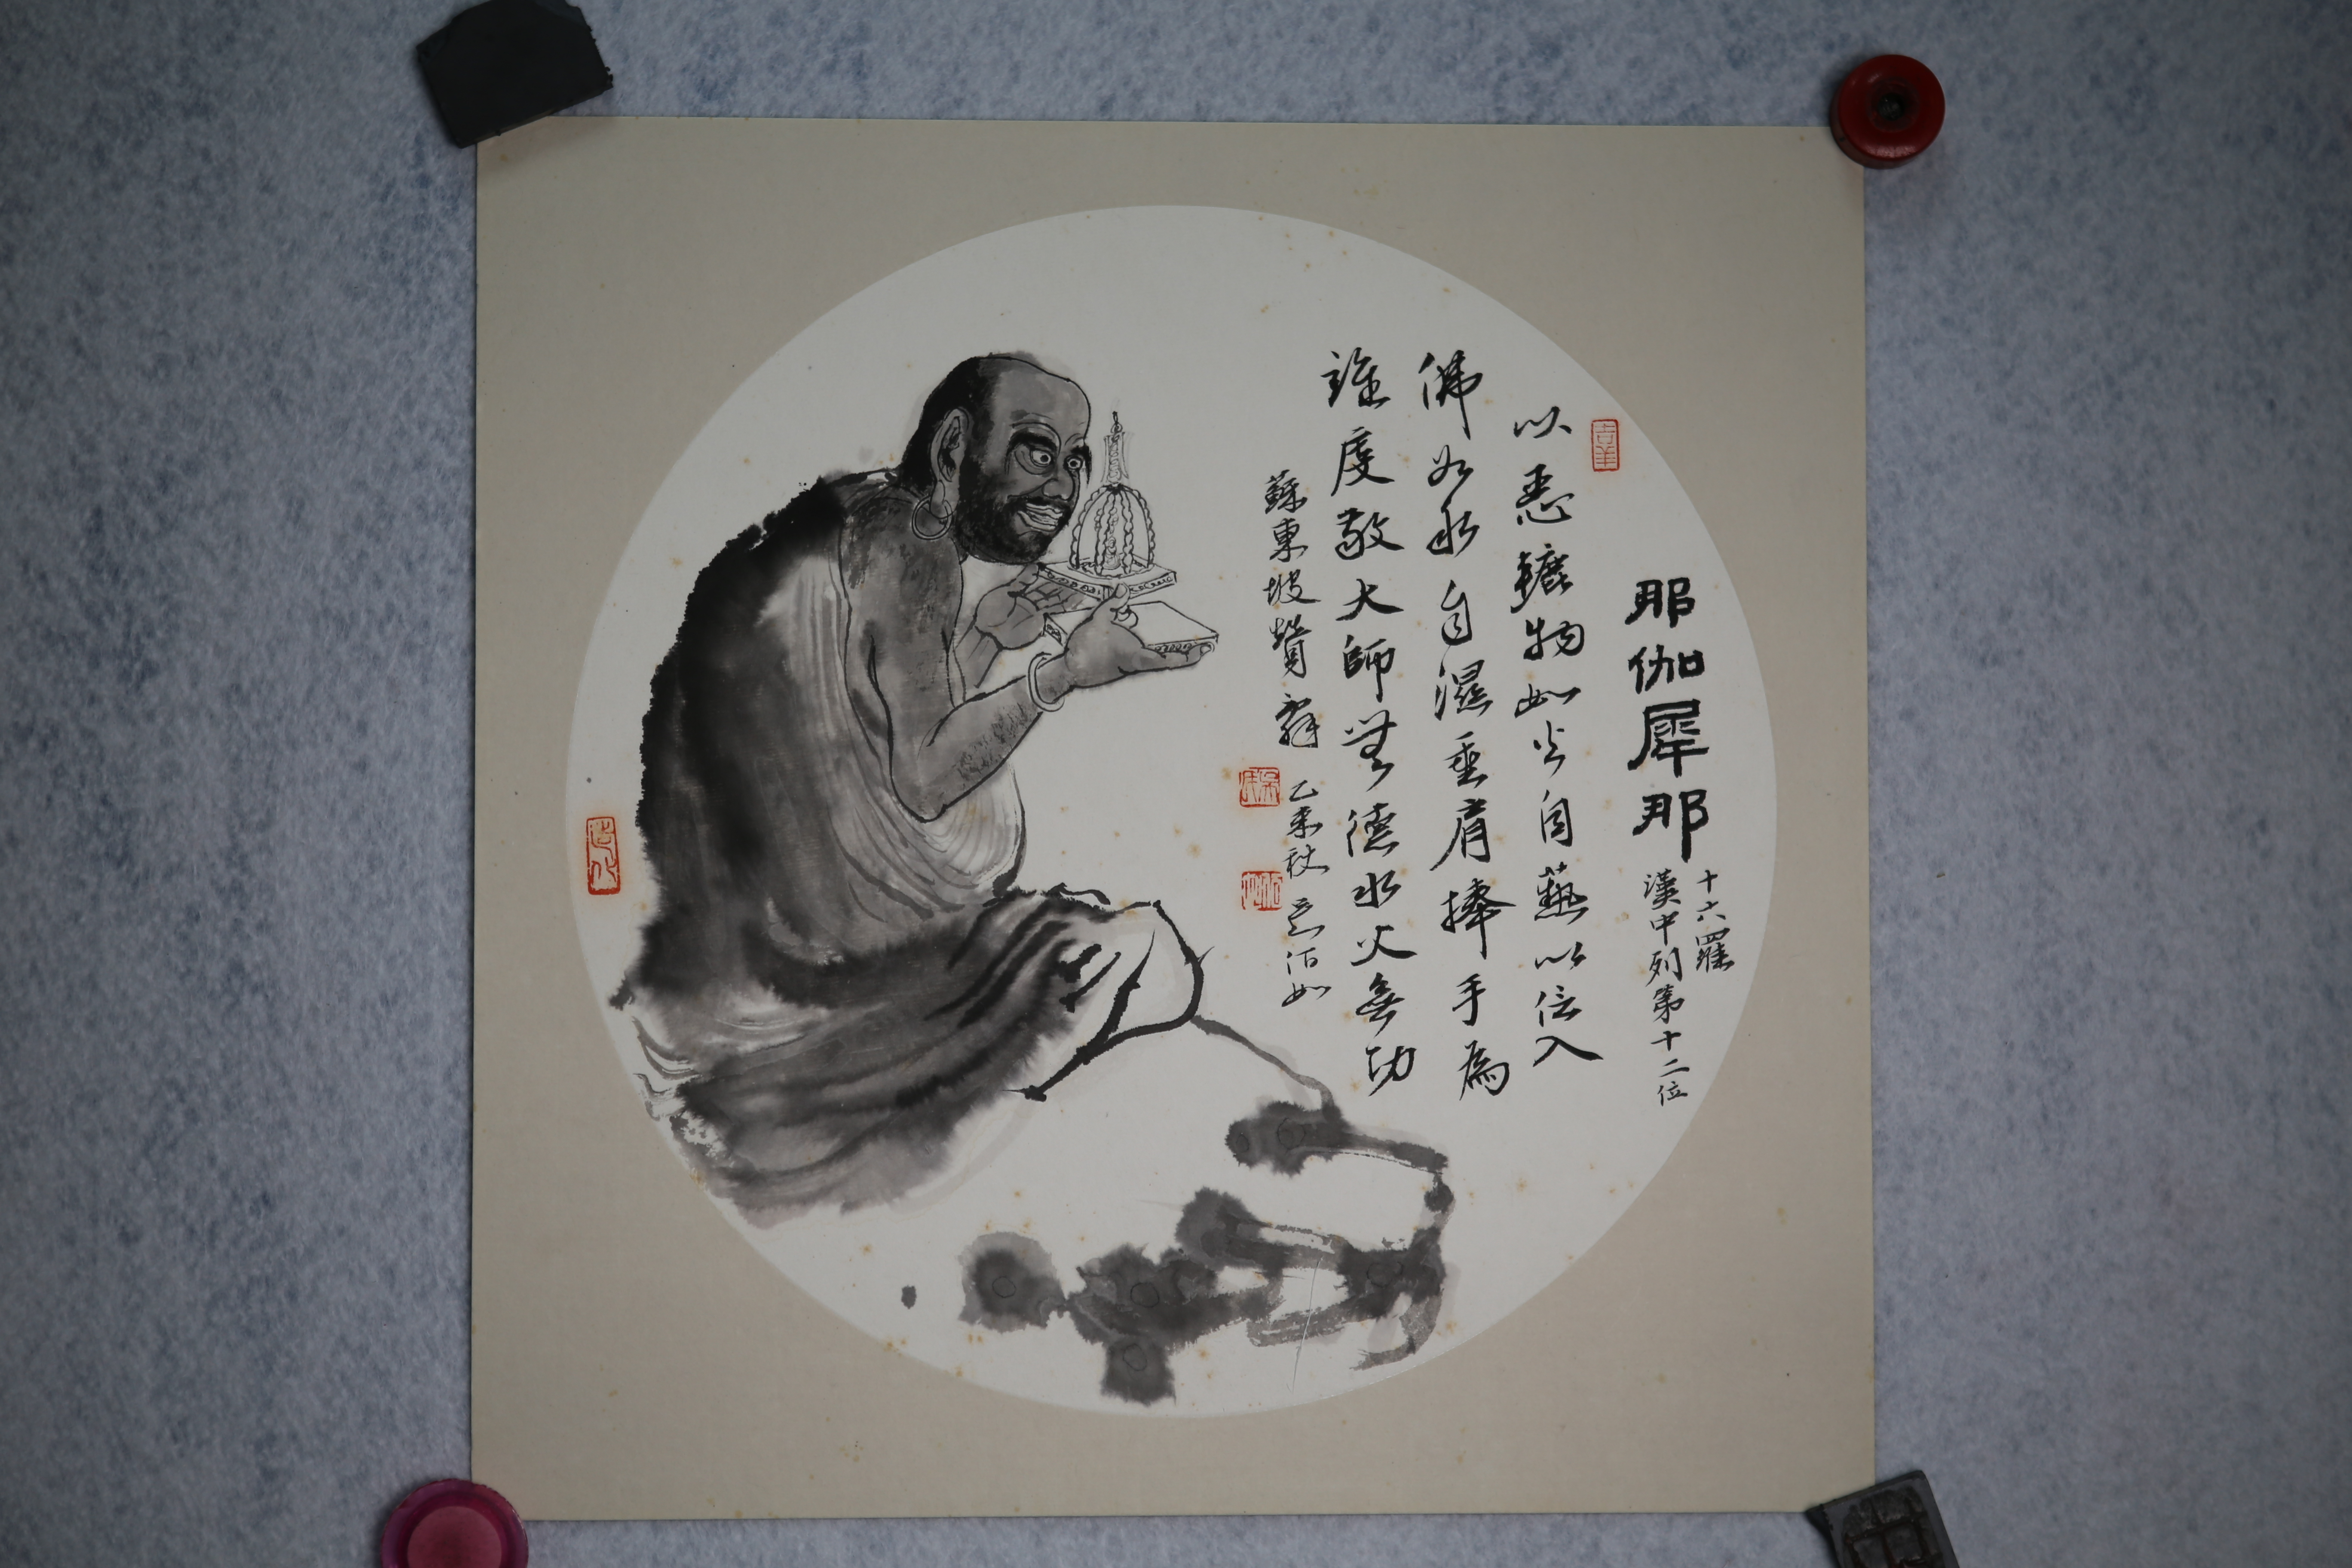 那伽犀那
十六羅
漢中列第十二位
以惡轆物如火自爇以信入
佛如水自濕垂肩捧手為
誰虔敬大師無德水火無功
蘇東坡贊辭 乙未秋